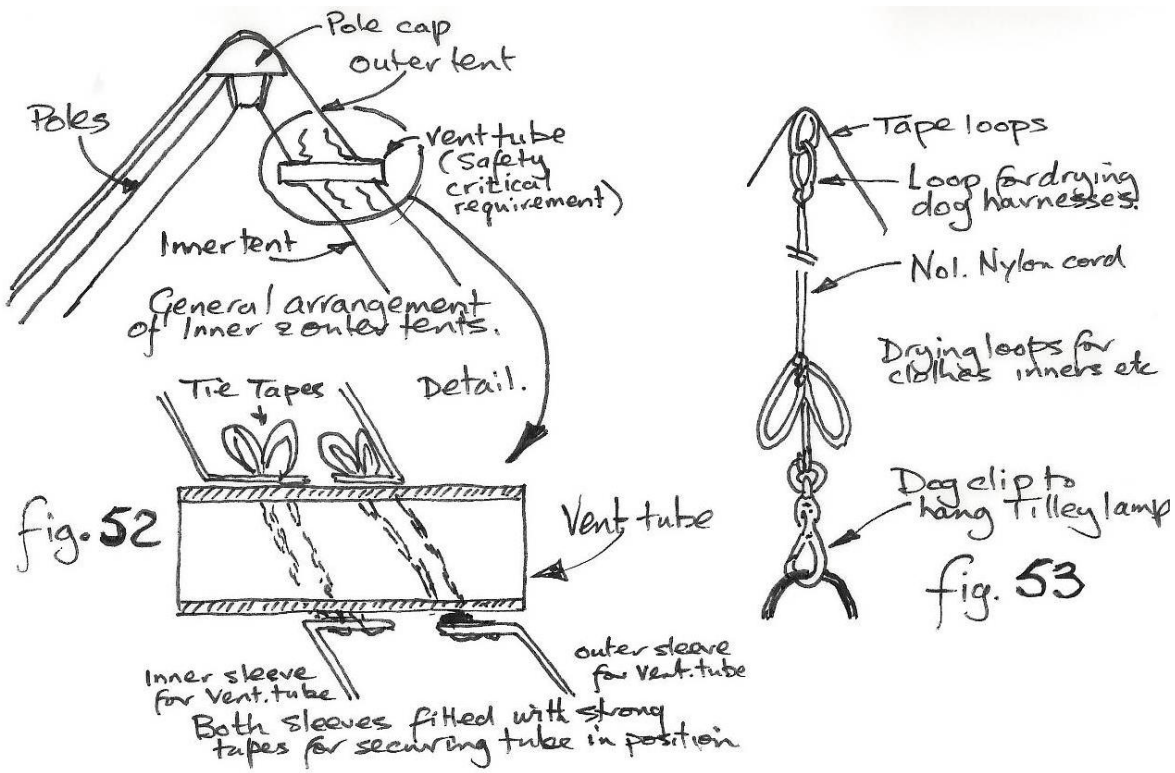 Pole cap
outer tent
Poles
Vent tube
(Safety
critical
requirement)
Inner tent
General arrangement
of Inner & outer tents.
Tie Tapes
Detail.
fig. 52
Vent tube
Inner sleeve
for Vent. tube
outer sleeve
for Vent. tube
Both sleeves fitted with strong
tapes for securing tube in position
Tape loops
Loop for drying
dog harnesses.
No1. Nylon cord
Drying loops for
clothes inners etc
Dog clip to
hang Tilley lamp
fig. 53